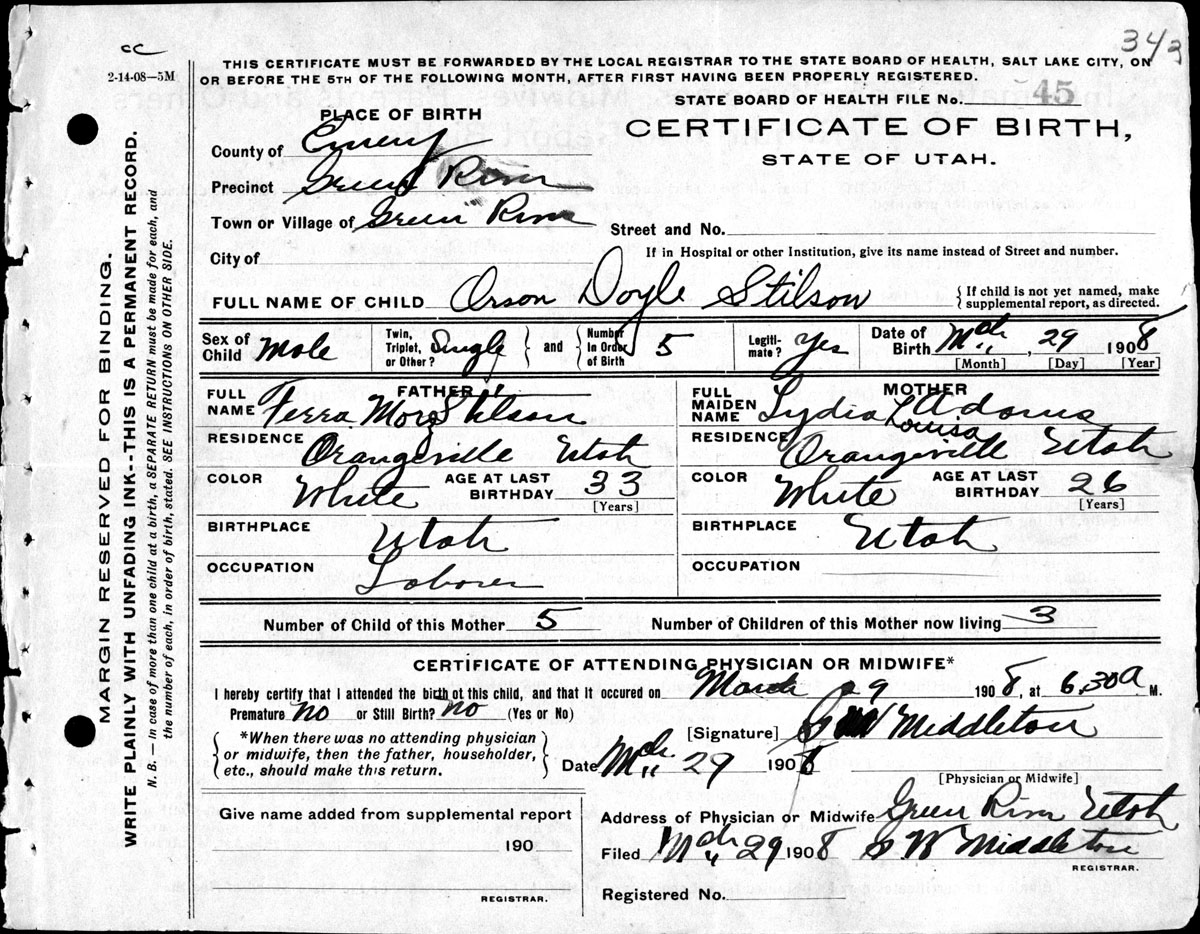 cc
343
2-14-08—5M
THIS CERTIFICATE MUST BE FORWARDED BY THE LOCAL REGISTRAR TO THE STATE BOARD OF HEALTH, SALT LAKE CITY, ON
OR BEFORE THE 5TH OF THE FOLLOWING MONTH, AFTER FIRST HAVING BEEN PROPERLY REGISTERED.
STATE BOARD OF HEALTH FILE No. 45
PLACE OF BIRTH
CERTIFICATE OF BIRTH,
STATE OF UTAH.
County of Emery
Precinct Green River
Town or Village of Green River
Street and No.
City of
If in Hospital or other Institution, give its name instead of Street and number.
FULL NAME OF CHILD Orson Doyle Stilson { If child is not yet named, make supplemental report, as directed.
Sex of Child Male Twin, Triplet, or Other? Single } and { Number In Order of Birth 5 Legiti-mate? Yes Date of Birth Mch, 29 1908
[Month] [Day] [Year]
FATHER
FULL NAME Ferra Stilson
MOTHER
FULL MAIDEN NAME Lydia Louisa Adams
RESIDENCE Orangeville Utah
RESIDENCE Orangeville Utah
COLOR White AGE AT LAST BIRTHDAY 33 [Years]
COLOR White AGE AT LAST BIRTHDAY 26 [Years]
BIRTHPLACE Utah
BIRTHPLACE Utah
OCCUPATION Laborer
OCCUPATION
Number of Child of this Mother 5 Number of Children of this Mother now living 3
CERTIFICATE OF ATTENDING PHYSICIAN OR MIDWIFE*
I hereby certify that I attended the birth of this child, and that it occured on March 29 1908, at 6.30 a M.
Premature no or Still Birth? no (Yes or No)
[Signature] Middleton
{ *When there was no attending physician
or midwife, then the father, householder,
etc., should make this return. }
Date Mch. 29 1908
[Physician or Midwife]
Give name added from supplemental report
190
REGISTRAR.
Address of Physician or Midwife Green River Utah
Filed Mch 29 1908 W Middleton
REGISTRAR.
Registered No.
MARGIN RESERVED FOR BINDING.
WRITE PLAINLY WITH UNFADING INK--THIS IS A PERMANENT RECORD.
N. B. — In case of more than one child at a birth, a SEPARATE RETURN must be made for each, and
the number of each, in order of birth, stated. SEE INSTRUCTIONS ON OTHER SIDE.